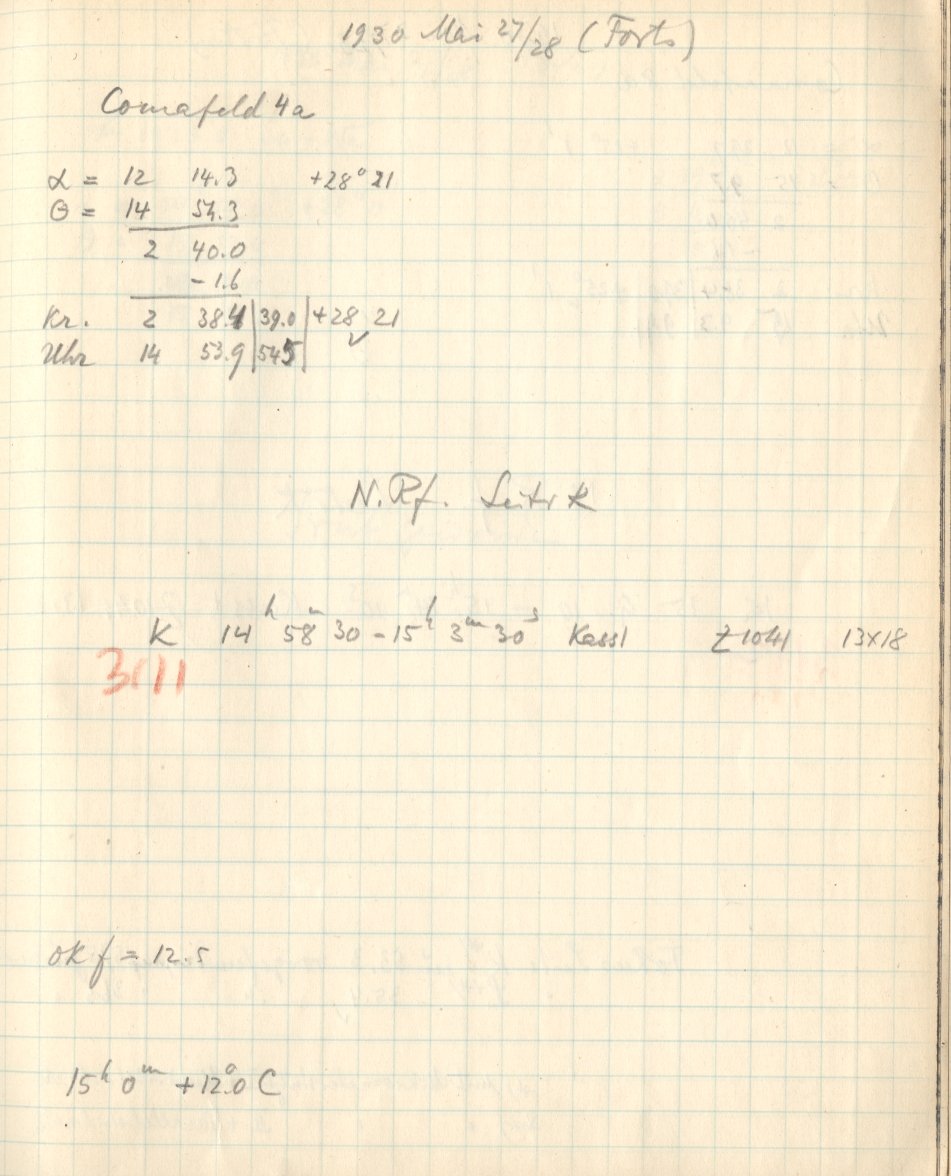 1930 Mai 27/28 (Forts)
Comafeld 4a
α = 12 14.3 +28° 21
θ = 14 54.3
2 40.0
- 1.6
Kr. 2 38.4 | 39.0 | +28 21 ✓
Uhr 14 53.9 | 545 |
N. Rf.
K 14h 58m 30 - 15h 3m 30s Kassl Z 1041 13x18
3111
okf = 12.5
15h 0m +12°.0 C